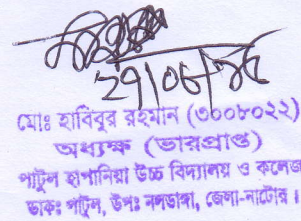 ২৭/০৮/১৫
মোঃ হাবিবুর রহমান (৩০০৮০২২)
অধ্যক্ষ (ভারপ্রাপ্ত)
পাটুল হাপানিয়া উচ্চ বিদ্যালয় ও কলেজ
ডাকঃ পাটুল, উপঃ নলডাঙ্গা, জেলা-নাটোর।